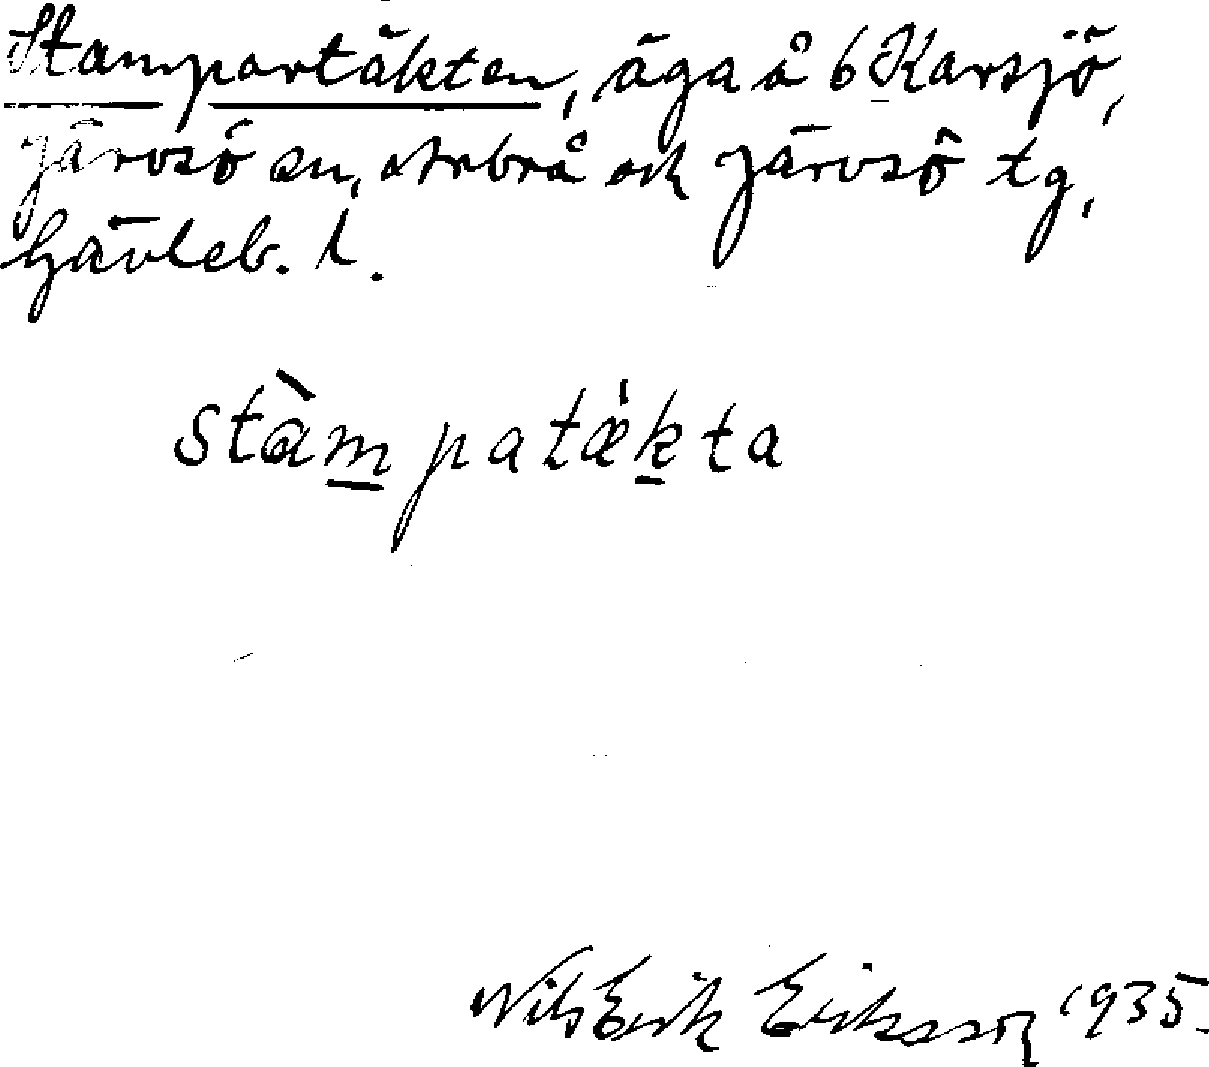 Stampartäkten, äga å 6 Karsjö,
Järvsö sn, Arbrå ock Järvsö tg,
Gävleb. l.
stàmpatǽkta
Nils Erik Eriksson 1935.